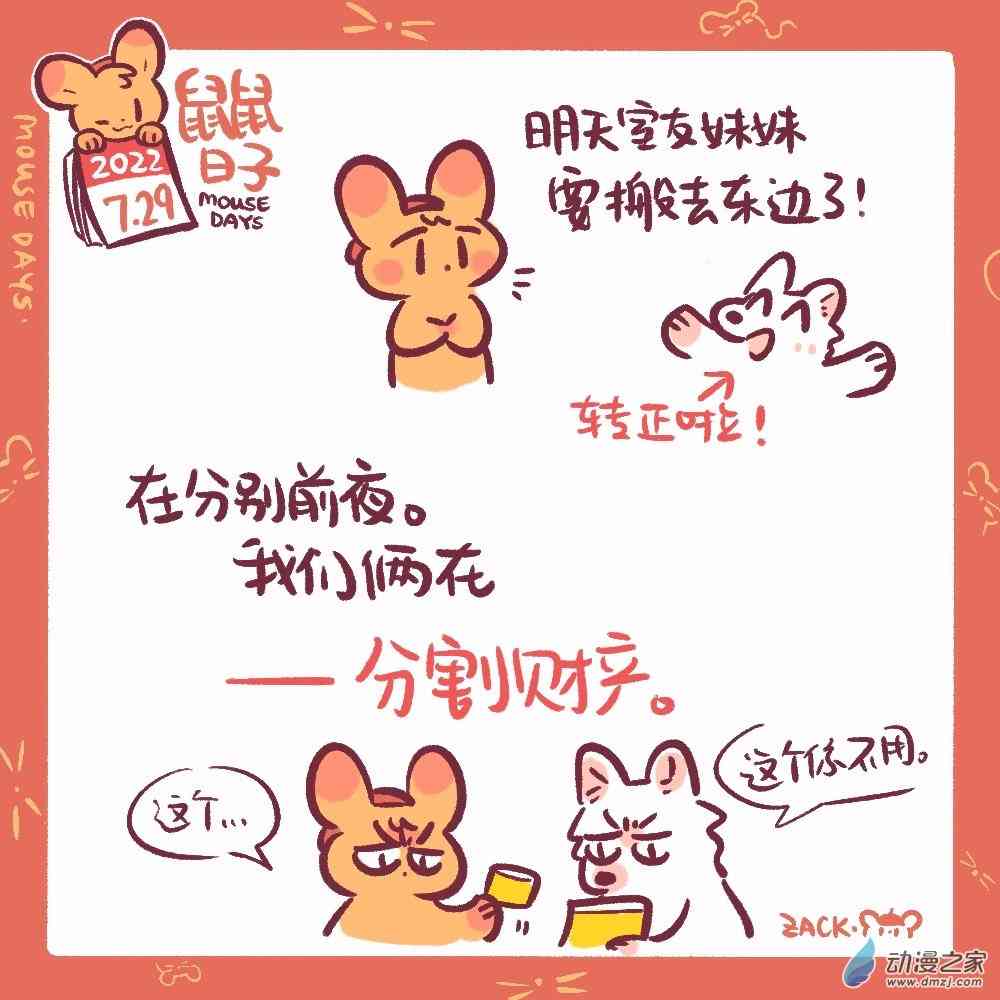 MOUSE DAYS.
2022
7.29
鼠鼠
日子
MOUSE
DAYS
明天室友妹妹
要搬去东边了!
转正啦!
在分别前夜。
我们俩在
——分割财产。
这个...
这个你不用。
ZACK.
动漫之家
www.dmzj.com